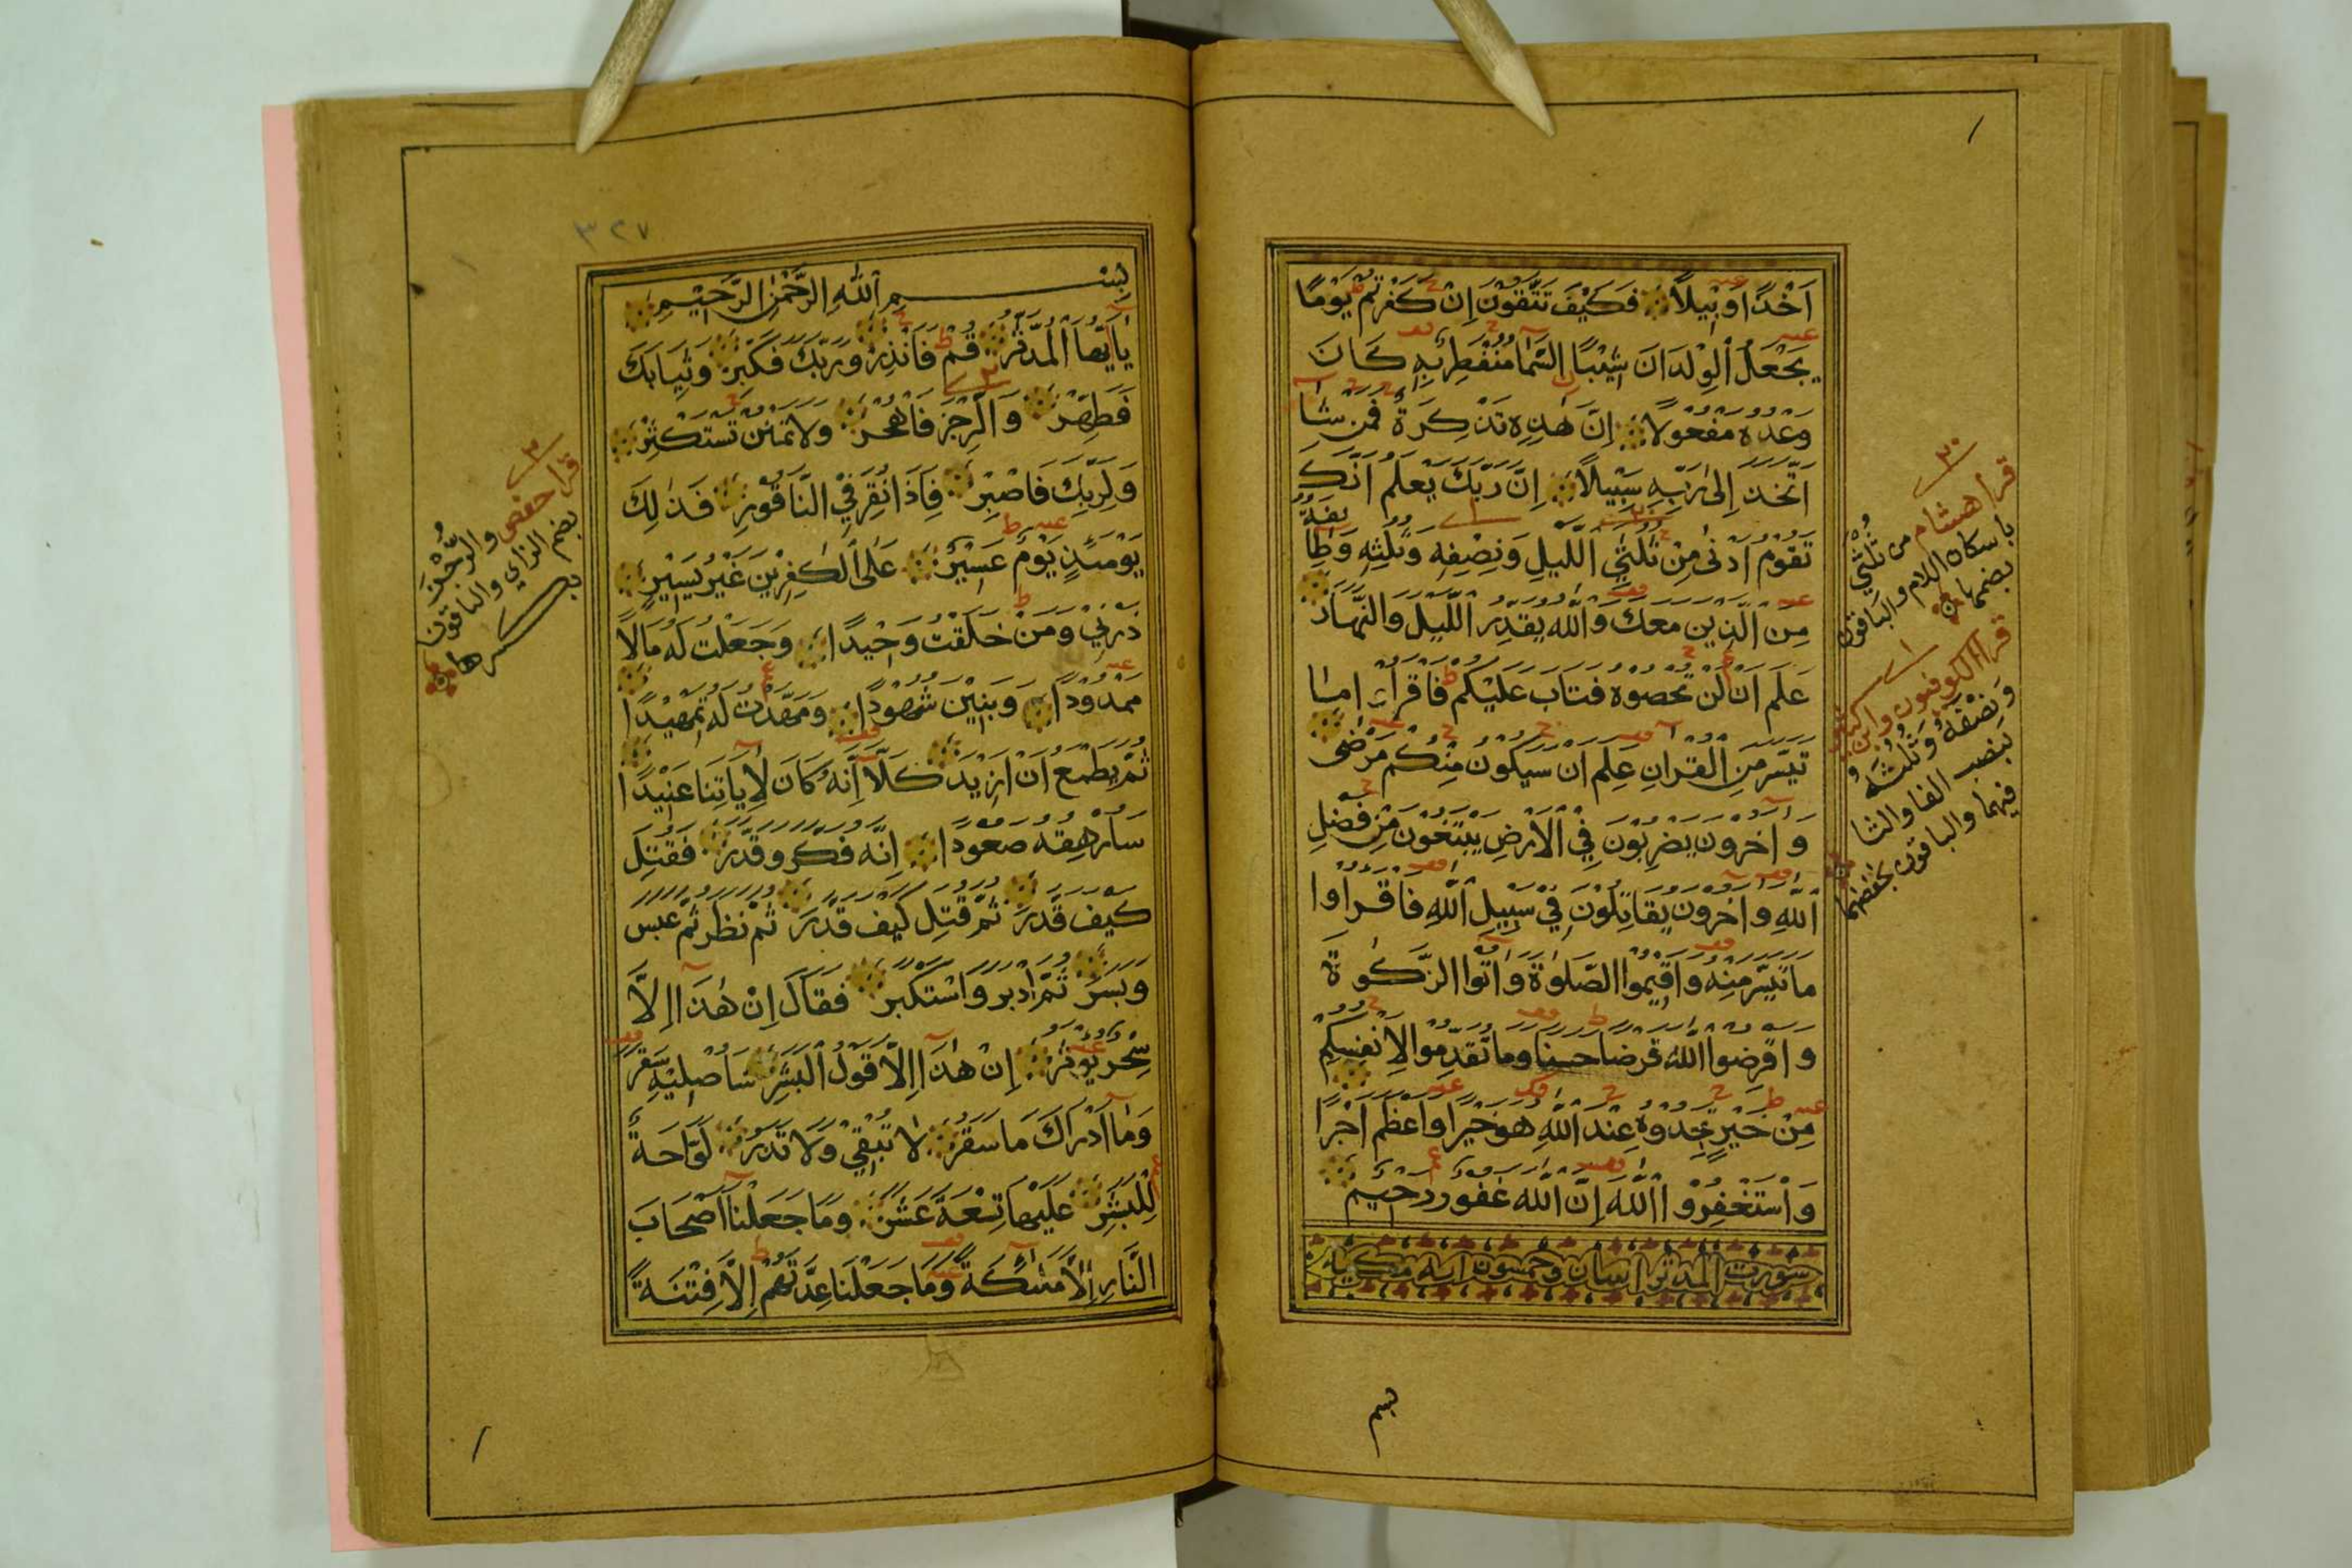 اَخْذًا وَبِيْلًا فَكَيْفَ تَتَّقُوْنَ اِنْ كَفَرْتُمْ يَوْمًا
يَجْعَلُ الْوِلْدَانَ شِيْبًا السَّمَا مُنْفَطِرٌ بِهِ كَانَ
وَعْدُهُ مَفْعُولًا اِنَّ هٰذِهِ تَذْكِرَةٌ فَمَنْ شَا
اتَّخَذَ اِلٰى رَبِّهِ سَبِيْلًا اِنَّ رَبَّكَ يَعْلَمُ اَنَّكَ
تَقُوْمُ اَدْنٰى مِنْ ثُلُثَيِ اللَّيْلِ وَنِصْفِهِ وَثُلُثِهِ وَطَا يفَةٌ
مِنَ الَّذِينَ مَعَكَ وَاللّٰهُ يُقَدِّرُ اللَّيْلَ وَالنَّهَارَ
عَلِمَ اَنْ لَنْ تُحْصُوهُ فَتَابَ عَلَيْكُمْ فَاقْرَاُ امَا
تَيَسَّرَ مِنَ الْقُرْاٰنِ عَلِمَ اَنْ سَيَكُوْنُ مِنْكُمْ مَرْضٰى
وَاٰخَرُونَ يَضْرِبُوْنَ فِي الْاَرْضِ يَبْتَغُوْنَ مِنْ فَضْلِ
اللّٰهِ وَاٰخَرُونَ يُقَاتِلُوْنَ فِيْ سَبِيْلِ اللّٰهِ فَاقْرَاُوا
مَا تَيَسَّرَ مِنْهُ وَاَقِيْمُوا الصَّلٰوةَ وَاٰتُوا الزَّكٰوةَ
وَاَقْرِضُوا اللّٰهَ قَرْضًا حَسَنًا وَمَا تُقَدِّمُوا لِاَنْفُسِكُمْ
مِنْ خَيْرٍ تَجِدُوْهُ عِنْدَ اللّٰهِ هُوَ خَيْرًا وَاَعْظَمَ اَجْرًا
وَاسْتَغْفِرُوْا اللّٰهَ اِنَّ اللّٰهَ غَفُورٌ رَحِيْمٌ
سورت المدثر اثنان وخمسون ايه مكيه
٣٠
قرأ هشام من ثُلْثَيِ
باسكان اللام والباقون
بضمها
قرا الكوفيون وابن كثير
وَنِصْفَهُ وَثُلُثَهُ
بنصب الفا والثا
فيهما والباقون بخفضهما
بسم
٣٢٧
بِسْمِ اللّٰهِ الرَّحْمٰنِ الرَّحِيْمِ
يَا اَيُّهَا الْمُدَّثِّرُ قُمْ فَاَنْذِرْ وَرَبَّكَ فَكَبِّرْ وَثِيَابَكَ
فَطَهِّرْ وَالرُّجْزَ فَاهْجُرْ وَلَا تَمْنُنْ تَسْتَكْثِرُ
وَلِرَبِّكَ فَاصْبِرْ فَاِذَا نُقِرَ فِي النَّاقُوْرِ فَذٰلِكَ
يَوْمَئِذٍ يَوْمٌ عَسِيْرٌ عَلَى الْكٰفِرِيْنَ غَيْرُ يَسِيْرٍ
ذَرْنِيْ وَمَنْ خَلَقْتُ وَحِيْدًا وَجَعَلْتُ لَهُ مَالًا
مَمْدُودًا وَبَنِيْنَ شُهُوْدًا وَمَهَّدْتُ لَهُ تَمْهِيْدًا
ثُمَّ يَطْمَعُ اَنْ اَزِيْدَ كَلَّا اِنَّهُ كَانَ لِاٰيَاتِنَا عَنِيْدًا
سَاُرْهِقُهُ صَعُوْدًا اِنَّهُ فَكَّرَ وَقَدَّرَ فَقُتِلَ
كَيْفَ قَدَّرَ ثُمَّ قُتِلَ كَيْفَ قَدَّرَ ثُمَّ نَظَرَ ثُمَّ عَبَسَ
وَبَسَرَ ثُمَّ اَدْبَرَ وَاسْتَكْبَرَ فَقَالَ اِنْ هٰذَا اِلَّا
سِحْرٌ يُؤْثَرُ اِنْ هٰذَا اِلَّا قَوْلُ الْبَشَرِ سَاُصْلِيْهِ سَقَرَ
وَمَا اَدْرٰاكَ مَا سَقَرُ لَا تُبْقِيْ وَلَا تَذَرُ لَوَّاحَةٌ
لِلْبَشَرِ عَلَيْهَا تِسْعَةَ عَشَرَ وَمَا جَعَلْنَا اَصْحَابَ
النَّارِ اِلَّا مَلٰئِكَةً وَمَا جَعَلْنَا عِدَّتَهُمْ اِلَّا فِتْنَةً
٣
قرا حفص والرُّجْزَ
بضم الزاي والباقون
بكسرها